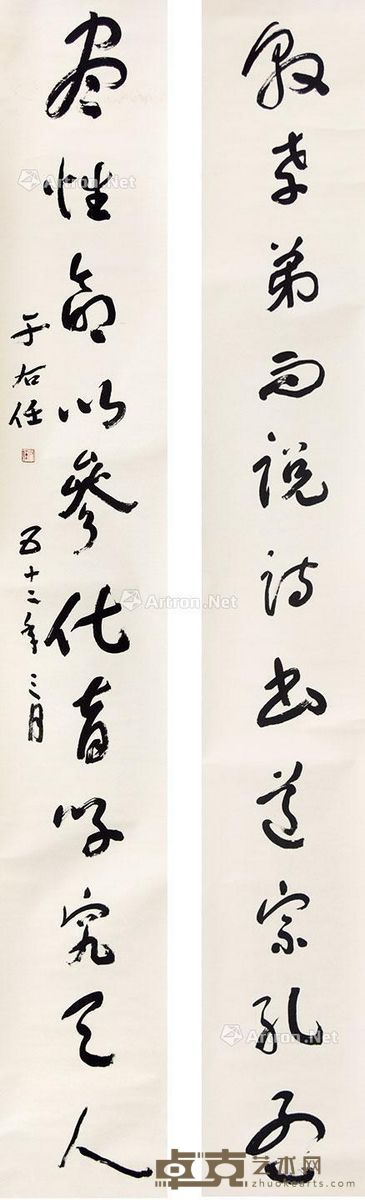 敦孝弟而說詩書道宗孔孟
盡性命以參化育學究天人
于右任
五十二年三月
Artron.Net
Artron.Net
Artron.Net
Artron.Net
卓克艺术网
zhuokearts.com